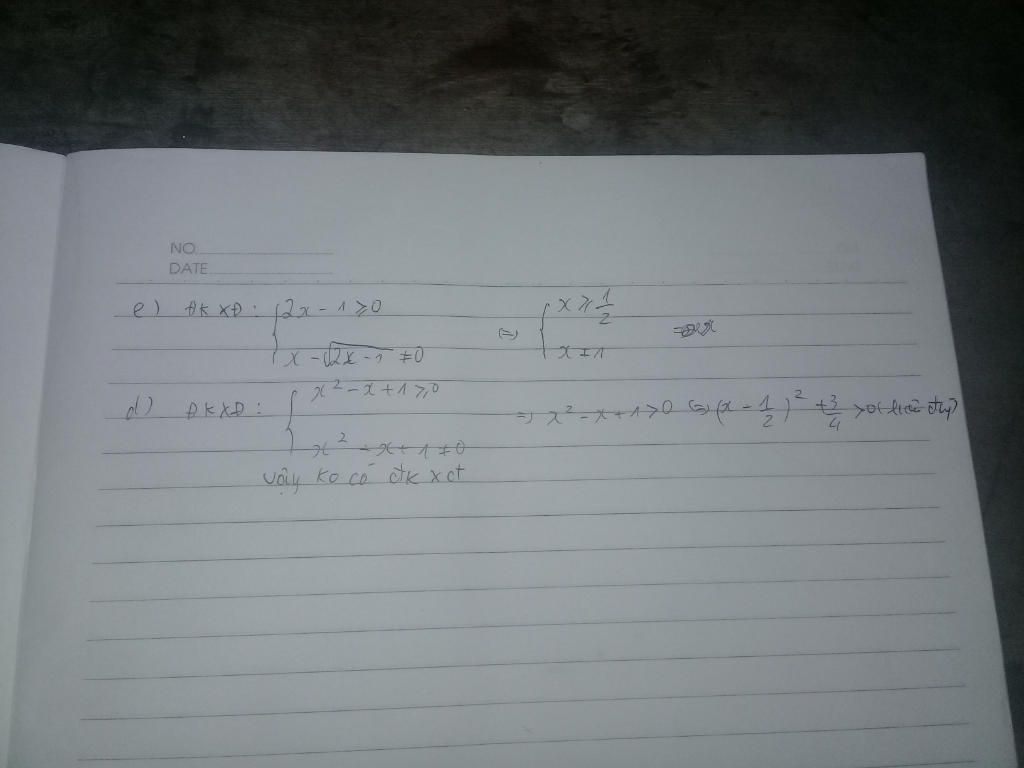 NO
DATE
e) ĐKXĐ: { 2x - 1 ≥ 0 ; x - √(2x - 1) ≠ 0 ⇔ { x ≥ 1/2 ; x ≠ 1
d) ĐKXĐ: { x² - x + 1 ≥ 0 ; x² - x + 1 ≠ 0 ⇒ x² - x + 1 > 0 ⇔ (x - 1/2)² + 3/4 > 0 (luôn đúng)
vậy ko có đk xđ